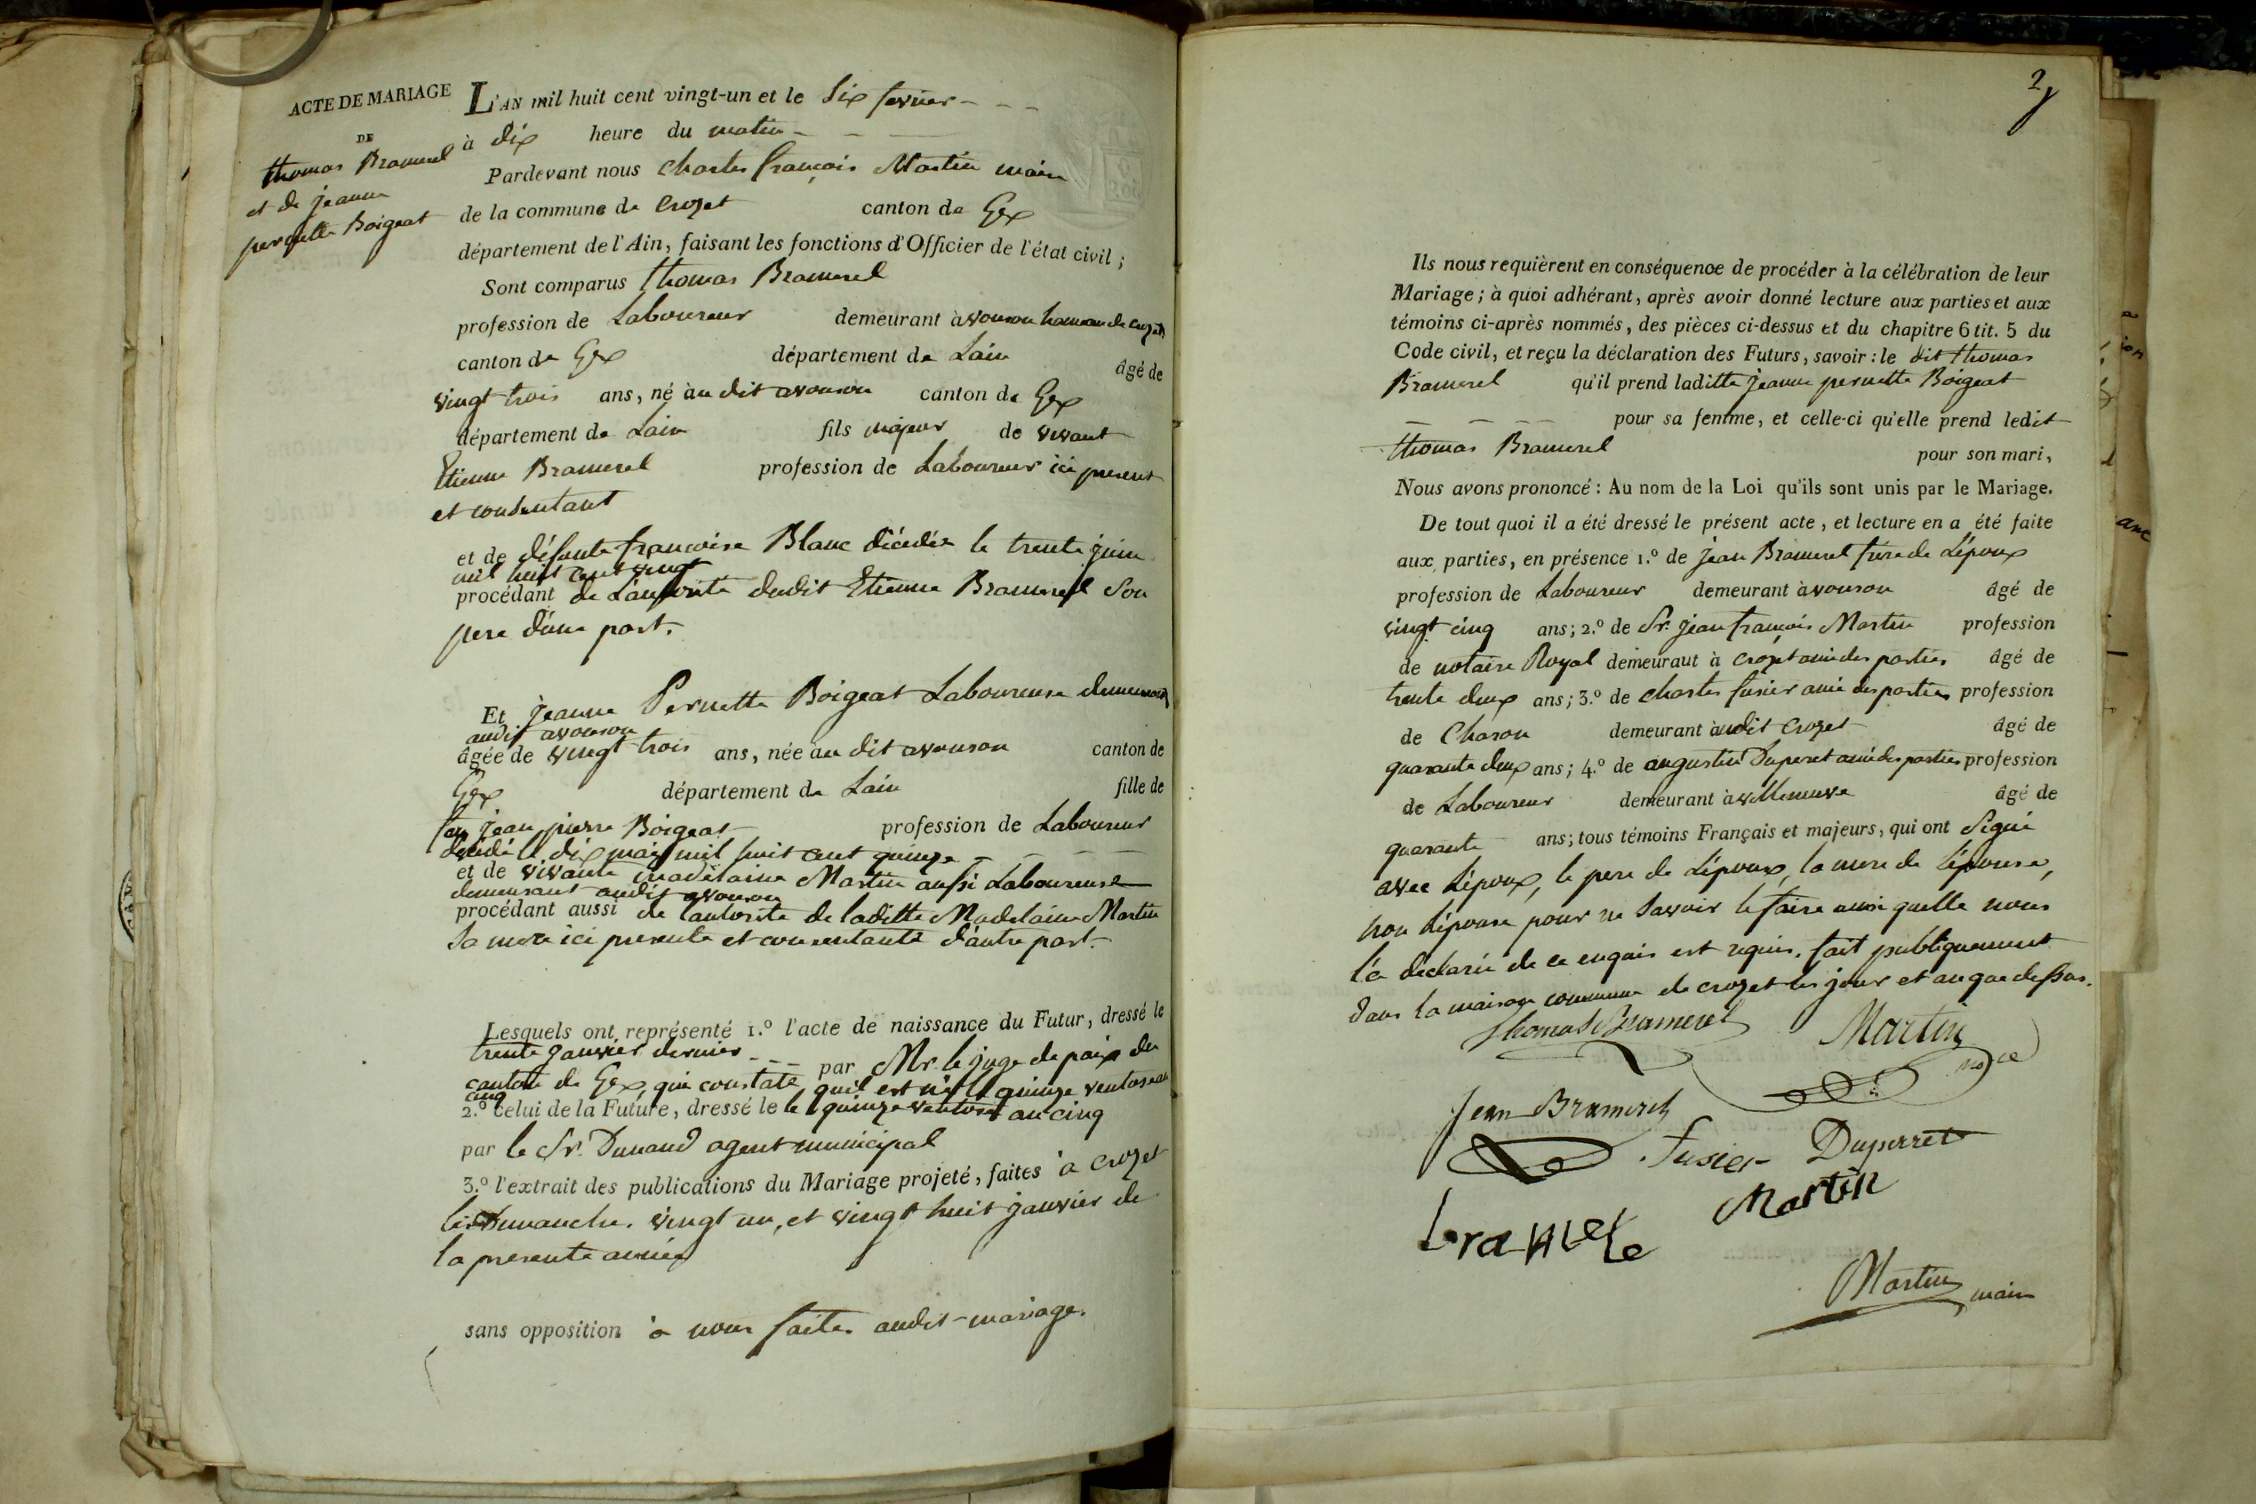 ACTE DE MARIAGE
DE
thomas Bramerel
et de jeanne
pernette Boigeat
L'AN mil huit cent vingt-un et le six fevrier - - -
à dix heure du matin - -
Pardevant nous charles françois Martin maire
de la commune de Crozet canton de Gex
département de l'Ain, faisant les fonctions d'Officier de l'état civil ;
Sont comparus thomas Bramerel
profession de Laboureur demeurant à avouson hameau de crozet
canton de Gex département de Lain âgé de
vingt trois ans, né à au dit avouson canton de Gex
département de Lain fils majeur de vivant
Etienne Bramerel profession de Laboureur ici present
et consentant
et de défunte françoise Blanc décédée le trente juin
mil huit cent vingt
procédant de Lautorité dudit Etienne Bramerel Son
pere d'une part.
Et jeanne Pernette Boigeat Laboureuse demeurant
audit avouson
âgée de vingt trois ans, née à au dit avouson canton de
Gex département de Lain fille de
feu jean pierre Boigeat profession de Laboureur
décédé le dix mai mil huit cent quinze - - - -
et de vivante madelaine Martin aussi Laboureuse
demeurant audit avouson
procédant aussi de l'autorité de laditte Madelaine Martin
Sa mere ici presente et consentante d'autre part.
Lesquels ont représenté 1.º l'acte de naissance du Futur, dressé le
trente janvier dernier - - - par Mr. le juge de paix du
canton de Gex, qui constate qu'il est né le quinze ventose an
cinq
2.º celui de la Future, dressé le le quinze ventose an cinq
par le Sr. Dunand agent municipal
3.º l'extrait des publications du Mariage projeté, faites à Crozet
les Dimanche. vingt un, et vingt huit janvier de
la presente année
sans opposition à nous faite audit mariage.
2
Ils nous requièrent en conséquence de procéder à la célébration de leur
Mariage ; à quoi adhérant, après avoir donné lecture aux parties et aux
témoins ci-après nommés, des pièces ci-dessus et du chapitre 6 tit. 5 du
Code civil, et reçu la déclaration des Futurs, savoir : le dit thomas
Bramerel qu'il prend laditte jeanne pernette Boigeat
- - - pour sa femme, et celle-ci qu'elle prend ledit
thomas Bramerel pour son mari,
Nous avons prononcé : Au nom de la Loi qu'ils sont unis par le Mariage.
De tout quoi il a été dressé le présent acte, et lecture en a été faite
aux parties, en présence 1.º de jean Bramerel frere de L'époux
profession de Laboureur demeurant à avouson âgé de
vingt cinq ans ; 2.º de Sr. jean françois Martin profession
de notaire Royal demeurant à crozet ami des parties âgé de
trente deux ans ; 3.º de charles fusier ami des parties profession
de Charon demeurant à audit crozet âgé de
quarante deux ans ; 4.º de augustin Duperet ami des parties profession
de Laboureur demeurant à villeneuve âgé de
quarante ans ; tous témoins Français et majeurs, qui ont Signé
avec L'époux, le pere de L'époux, la mere de L'épouse,
non L'épouse pour ne Savoir le faire ainsi quelle nous
l'a declaré de ce enquis est requis. fait publiquement
dans la maison commune de crozet les jour et an que dessus.
Thomas Bramerel Martin
nore
Jean Bramerel
Fusier Duperret
bramele Martin
Martin maire